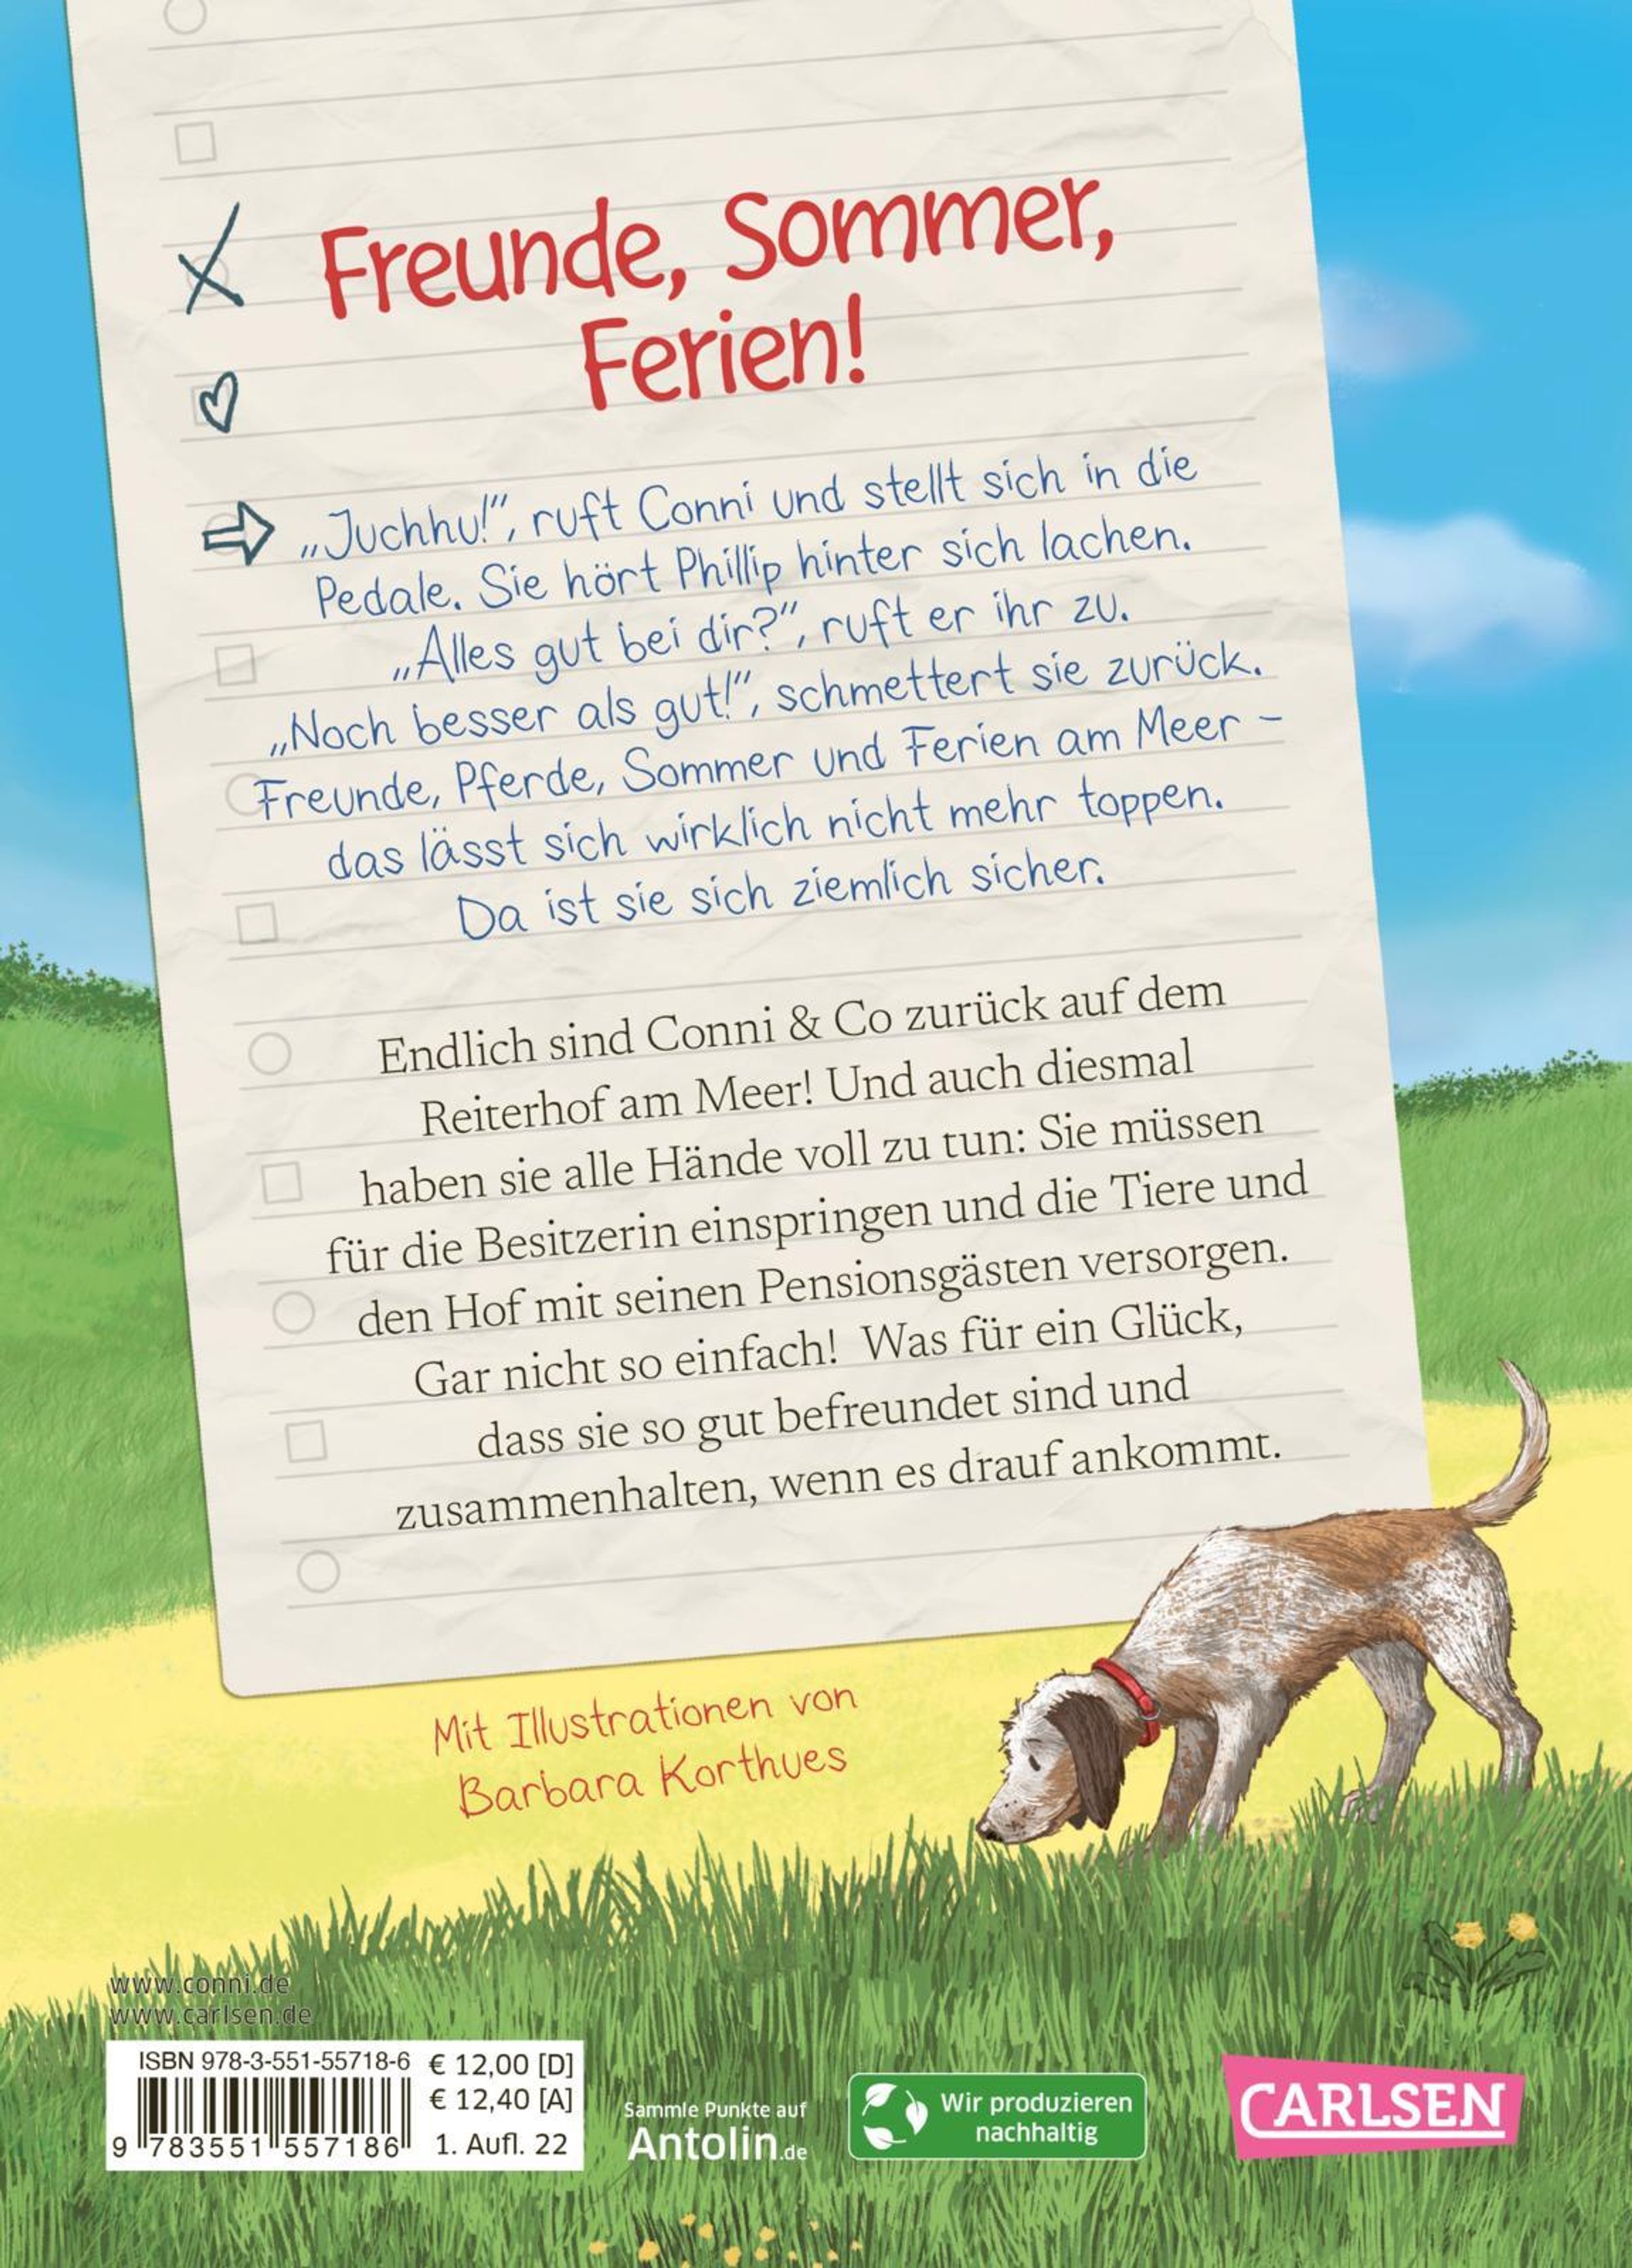 Freunde, Sommer,
Ferien!
„Juchhu!“, ruft Conni und stellt sich in die
Pedale. Sie hört Phillip hinter sich lachen.
„Alles gut bei dir?“, ruft er ihr zu.
„Noch besser als gut!“, schmettert sie zurück.
Freunde, Pferde, Sommer und Ferien am Meer –
das lässt sich wirklich nicht mehr toppen.
Da ist sie sich ziemlich sicher.
Endlich sind Conni & Co zurück auf dem
Reiterhof am Meer! Und auch diesmal
haben sie alle Hände voll zu tun: Sie müssen
für die Besitzerin einspringen und die Tiere und
den Hof mit seinen Pensionsgästen versorgen.
Gar nicht so einfach! Was für ein Glück,
dass sie so gut befreundet sind und
zusammenhalten, wenn es drauf ankommt.
Mit Illustrationen von
Barbara Korthues
www.conni.de
www.carlsen.de
ISBN 978-3-551-55718-6
€ 12,00 [D]
€ 12,40 [A]
9 783551 557186
1. Aufl. 22
Sammle Punkte auf
Antolin.de
Wir produzieren
nachhaltig
CARLSEN